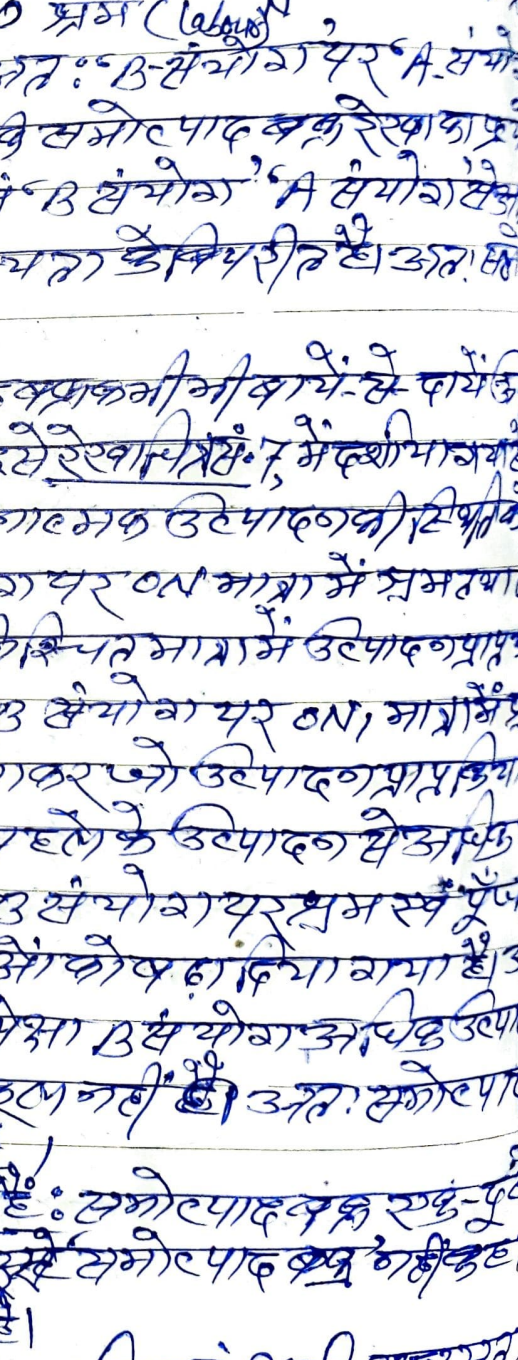 श्रम (Labour)
अतः 'B-संयोग' पर 'A-संयो
के समोत्पाद वक्र रेखा का
'B संयोग' 'A संयोग' से
यता के विपरीत है। अतः
वक्र कभी भी बायें-से-दायें
से रेखाचित्र सं. 7, में दर्शाया गया है
उत्पादन की स्थिति
ग पर ON मात्रा में श्रम तथा
निश्चित मात्रा में उत्पादन प्राप्त
B संयोग पर ON, मात्रा में
कर जो उत्पादन प्राप्त किया
पहले के उत्पादन से अधिक
B संयोग पर श्रम एवं पूँज
ओं को बढ़ा दिया गया है।
पेक्षा B संयोग अधिक उत्पा
नहीं है। अतः समोत्पा
है: समोत्पाद वक्र एक-दू
समोत्पाद वक्र नहीं कह
है।